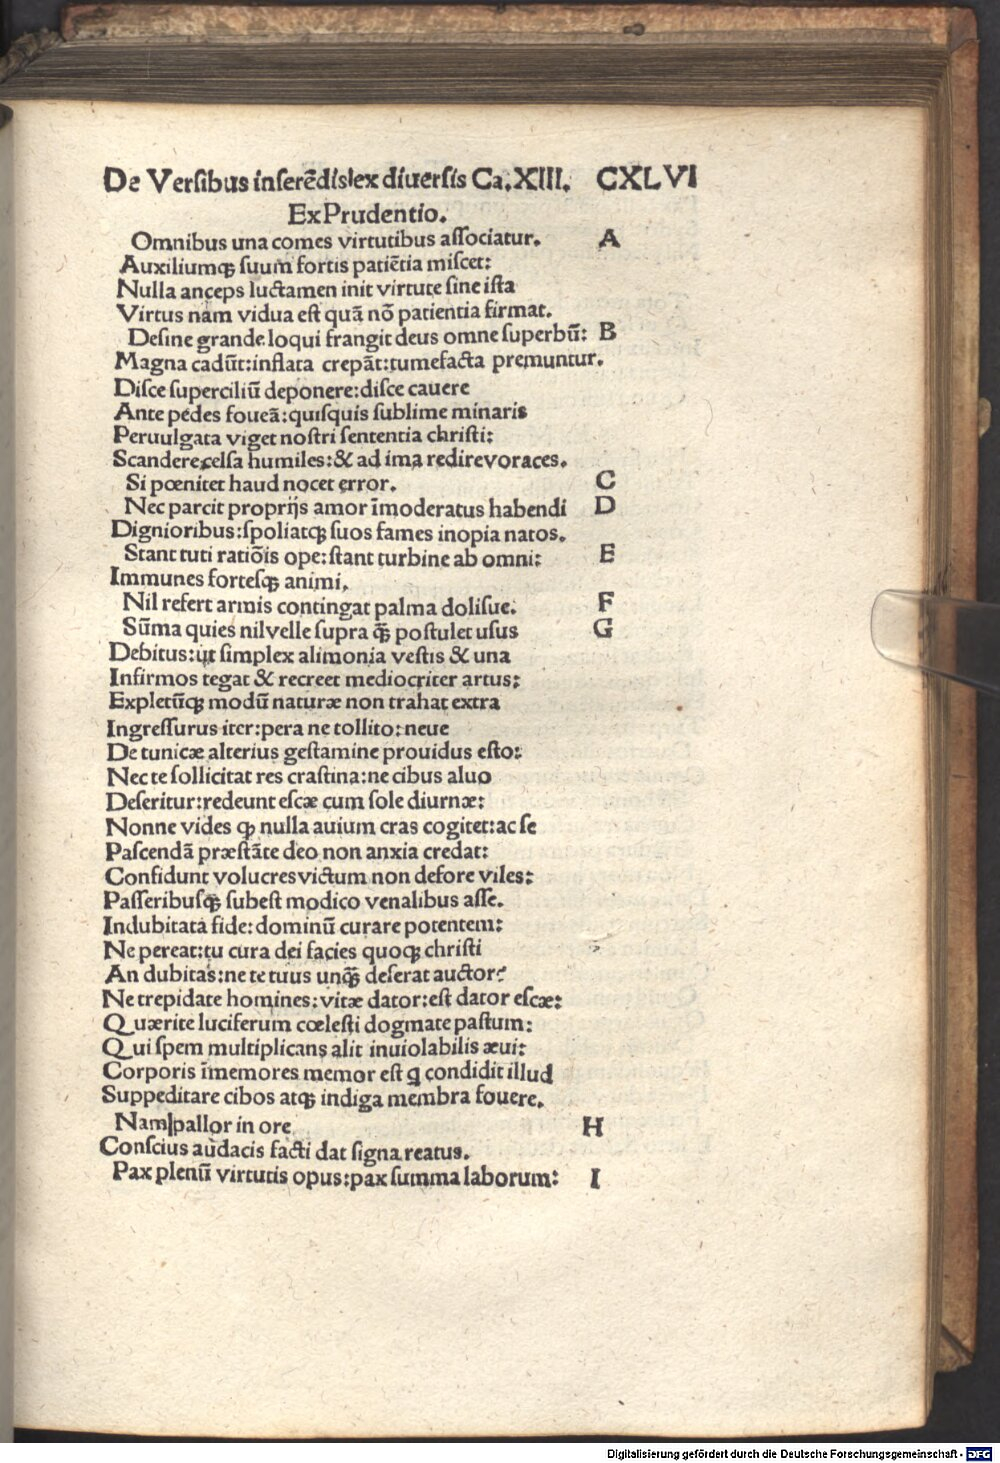 De Verſibus inſerēdis ex diuerſis Ca. XIII. CXLVI
Ex Prudentio.
Omnibus una comes virtutibus aſſociatur. A
Auxiliumqꝫ suum fortis patiētia miſcet:
Nulla anceps luctamen init virtute ſine iſta
Virtus nam vidua eſt quā nō patientia firmat.
Deſine grande loqui frangit deus omne ſuperbū: B
Magna cadūt: inflata crepāt: tumefacta premuntur.
Diſce ſuperciliū deponere: diſce cauere
Ante pedes foueā: quiſquis ſublime minaris
Peruulgata viget noſtri ſententia chriſti:
Scandere celſa humiles: & ad ima redire voraces.
Si pœnitet haud nocet error. C
Nec parcit proprijs amor īmoderatus habendi D
Dignioribus: ſpoliatqꝫ ſuos fames inopia natos.
Stant tuti ratiōis ope: ſtant turbine ab omni: E
Immunes forteſqꝫ animi.
Nil refert armis contingat palma doliſue. F
Sūma quies nil velle ſupra qꝫ̄ poſtulet uſus G
Debitus: ut ſimplex alimonia veſtis & una
Infirmos tegat & recreet mediocriter artus:
Expletūqꝫ modū naturæ non trahat extra
Ingreſſurus iter: pera ne tollito: neue
De tunicæ alterius geſtamine prouidus eſto:
Nec te ſollicitat res craſtina: ne cibus aluo
Deſeritur: redeunt eſcæ cum ſole diurnæ:
Nonne vides qꝫ nulla auium cras cogitet: ac ſe
Paſcendā præſtāte deo non anxia credat:
Confidunt volucres victum non defore viles:
Paſſeribuſqꝫ ſubeſt modico venalibus aſſe.
Indubitata fide: dominū curare potentem:
Ne pereat: tu cura dei facies quoqꝫ chriſti
An dubitas: ne te tuus unqꝫ̄ deſerat auctor?
Ne trepidate homines: vitæ dator: eſt dator eſcæ:
Quærite luciferum cœleſti dogmate paſtum:
Qui ſpem multiplicans alit inuiolabilis æui:
Corporis īmemores memor eſt q condidit illud
Suppeditare cibos atqꝫ indiga membra fouere.
Nam pallor in ore H
Conſcius audacis facti dat ſigna reatus.
Pax plenū virtutis opus: pax ſumma laborum: I
Digitalisierung gefördert durch die Deutsche Forschungsgemeinschaft - DFG